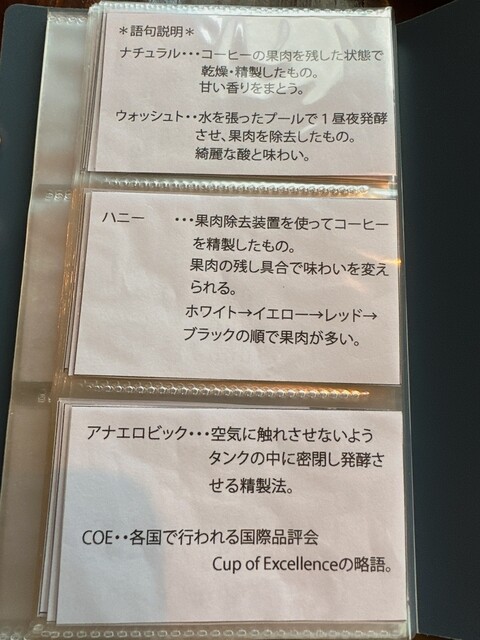 ＊語句説明＊
ナチュラル・・・コーヒーの果肉を残した状態で
乾燥・精製したもの。
甘い香りをまとう。
ウォッシュト・・水を張ったプールで１昼夜発酵
させ、果肉を除去したもの。
綺麗な酸と味わい。
ハニー　　・・・果肉除去装置を使ってコーヒー
を精製したもの。
果肉の残し具合で味わいを変え
られる。
ホワイト→イエロー→レッド→
ブラックの順で果肉が多い。
アナエロビック・・・空気に触れさせないよう
タンクの中に密閉し発酵さ
せる精製法。
COE・・各国で行われる国際品評会
Cup of Excellenceの略語。